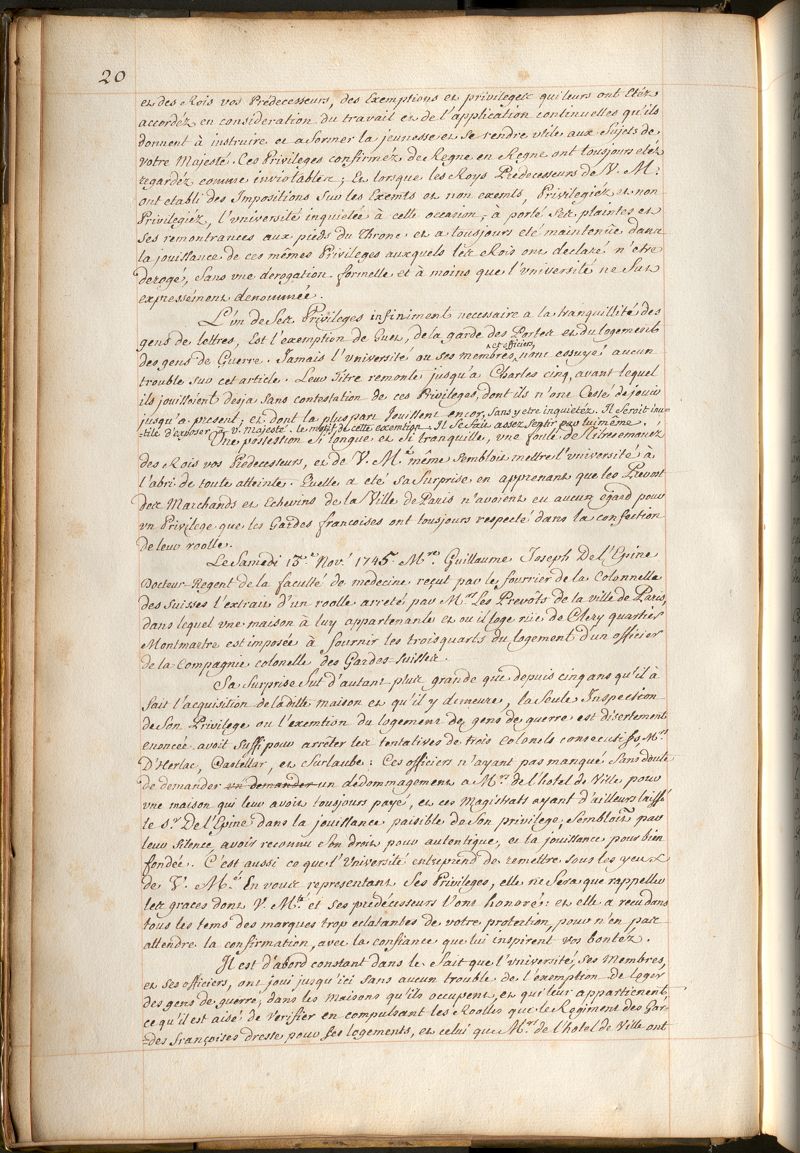 20
et des Rois vos Prédecesseurs, des Exemptions et privileges qui leurs ont étéz
accordéz en consideration du travail et de l'application continuelles qu'ils
donnent à instruire et a former la jeunesse et se rendre utile aux Sujets de
votre Majesté. Ces Privileges confirméz de Regne en Regne ont tousjours etéz
regardéz comme inviolables; Et lorsque les Roys Prédecesseurs de V. M:
ont etabli des Impositions Sur les Exemts et non exemts, Privilegiéz et non
Privilegiéz, l'université inquietée à cette occasion, à porté Ses plaintes et
Ses remontrances aux pieds du Throne et a tousjours eté maintenüe dans
la jouissance de ces mêmes Privileges auxquels les Rois ont declaré n'être
derogé, Sans une derogation formelle et à moins que l'université ne Fut
expressement denommée.
L'un de Ses Privileges infiniment necessaire a la tranquillité des
gens de lettres, Est l'exemption de Guet, de la garde des Portes et du logement
des gens de Guerre. Jamais l'université ou ses membres et officiers, n'ont essuyé aucun
trouble Sur cet article. Leur Titre remonte jusqu'a Charles cinq, avant lequel
ils jouissoient desja Sans contestation de ces Privileges, dont ils n'ont Cessé de jouir
jusqu'a present; et dont la pluspart Jouissent encor, Sans y etre inquietéz. Il seroit inu-
-tile d'exposer à V. Majesté le motif de cette exemtion. Il se fait assez sentir par luimême.
Une possession Si longue et Si tranquille, une foule de Titres emanez
des Rois vos Prédecesseurs, et de V. M.té même Sembloit mettre l'université à
l'abri de toute atteinte. Quelle a eté sa Surprise en apprenant que les Prevost
des Marchands et Echevins de la Ville de Paris n'avoient eu aucun égard pour
un Privilege que les Gardes francoises ont tousjours respecté dans la confection
de leur roolle.
Le Samedi 13.e Nov.e 1745. M.re Guillaume Joseph De l'Epine
Docteur-Regent de la faculté de medecine reçut par le fourrier de la Colonnelle
des Suisses l'extrait d'un roolle arreté par M.rs Les Prevôts de la ville de Paris,
dans lequel une maison à luy appartenante et ou il loge rüe de Clery quartier
Montmartre est imposée à fournir les trois quarts du logement d'un officier
de la Compagnie colonelle des Gardes-Suisses.
Sa surprise fut d'autant plus grande que depuis cinq ans qu'il à
fait l'acquisition de ladite maison et qu'il y demeure, la Seule Inspection
de Son Privilege ou l'exemtion du logement de gens de guerre est disertement
enoncée avoit Suffi pour arrêter les tentatives de trois Colonels consecutifs, M.rs
D'Herlac, Castellar, et Surlaube: Ces officiers n'ayant pas manqué Sans doute
de demander un demander un dédommagement a M.rs de l'hotel de Ville pour
une maison qui leur avoit tousjours payé, et ces Magistrats ayant d'ailleurs laissé
le S.r De l'Epine dans la jouissance paisible de Son privilege, Sembloient par
leur Silence, avoir reconnu Son droit pour autentique, et la jouissance pour bien
fondée. C'est aussi ce que l'Université entreprend de remettre sous les yeux
de V. M.té En vous representant Ses Privileges, elle ne Sera que rappeller
les graces dont V. M.té et ses predécesseurs l'ont honoré: et elle a recu dans
tous les tems des marques trop eclatantes de votre protection, pour n'en pas
attendre la confirmation, avec la confiance que lui inspirent vos bontéz.
Il est d'abord constant dans le Fait que l'université, ses Membres,
et ses officiers, ont joui jusqu'ici sans aucun trouble de l'exemption de loger
des gens de guerre, dans les maisons qu'ils occupent, et qui leur appartienent,
ce qu'il est aisé de verifier en compulsant les Roolles que le Regiment des Gar-
-des Françoises dresse pour ses logements, et celui que M.rs de l'hotel de Ville ont